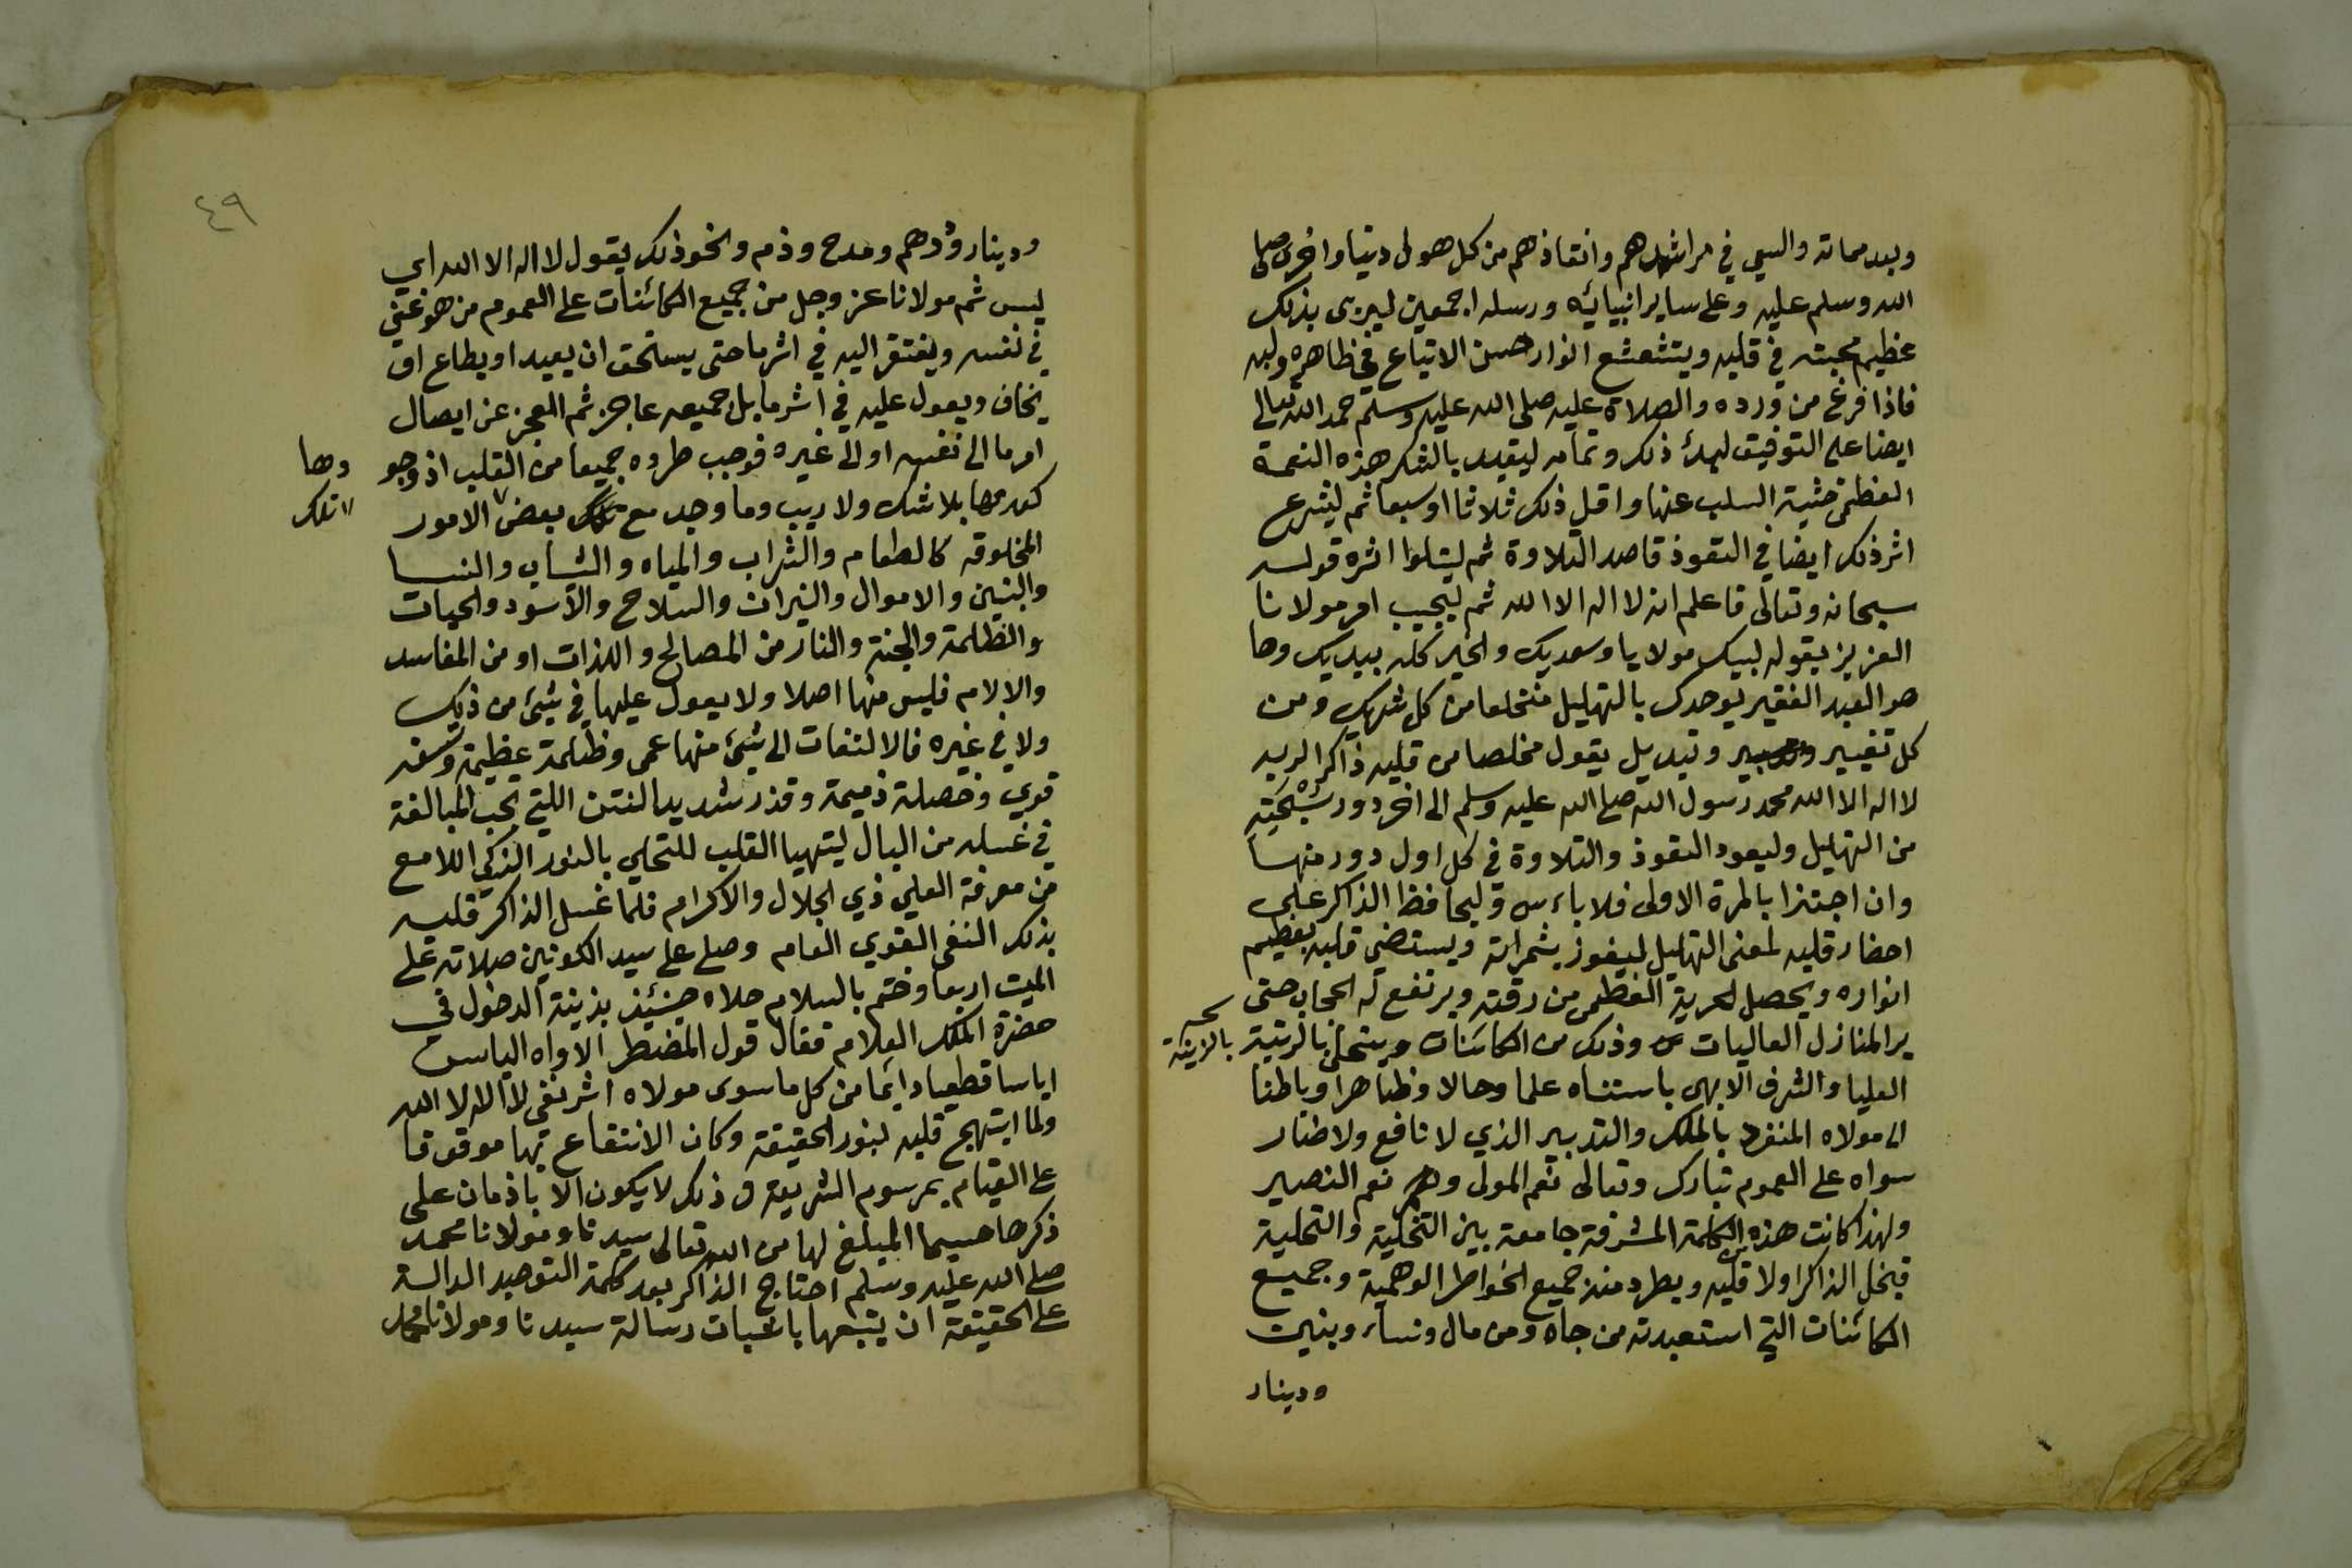 وبعد مماته والسعي في مراشدهم وانقاذهم من كل هول دنيا واخرى صلى
الله وسلم عليه وعلى ساير انبيائه ورسله اجمعين ليربى بذلك
عظيم محبته في قلبه ويتشعشع انوار حسن الاتباع في ظاهره ولبه
فاذا فرغ من ورده والصلاة عليه صلى الله عليه وسلم حمد الله تعالى
ايضا على التوفيق لبدئ ذلك وتمامه ليقيد بالشكر هذه النعمة
العظمى خشية السلب عنها واقل ذلك ثلاثا اوسبعا ثم ليشرع
اثر ذلك ايضا في التعوذ قاصد التلاوة ثم ليتلوا اثره قوله
سبحانه وتعالى فاعلم انه لا اله الا الله ثم ليجيب امر مولانا
العزيز بقوله لبيك مولايا وسعديك والخير كله بيديك وها
هو العبد الفقير يوحدك بالتهليل منخلعا من كل شريك ومن
كل تغيير وتبديل يقول مخلصا من قلبه ذاكرا لربه
لا اله الا الله محمد رسول الله صلى الله عليه وسلم الى اخر دور سبحته
من التهليل وليعود التعوذ والتلاوة في كل اول دور منها
وان اجتزا بالمرة الاولى فلا باءس وليحافظ الذاكر على
احضار قلبه لمعنى التهليل ليفوز بثمراته ويستضي قلبه بعظيم
انواره ويحصل لحرية العظمى من رقته ويرتفع له الحجاب حتى
ير المنازل العاليات وذلك من الكائنات ويتحلى بالرتبة بالزينة
العليا والشرف الابهى باستناه علما وحالا وظاهرا وباطنا
الى مولاه المنفرد بالملك والتدبير الذي لا نافع ولا ضار
سواه على العموم تبارك وتعالى نعم المولى ونعم النصير
ولهذا كانت هذه الكلمة المشرفة جامعة بين التخلية والتحلية
فيخل الذاكر اولا قلبه ويطرد منه جميع الخواطر الوهمية وجميع
الكائنات التي استعبدته من جاه ومن مال ونساء وبنين
ودينار
٤٩
ودينار ودرهم ومدح وذم ونحو ذلك يقول لا اله الا الله اي
ليس ثم مولانا عز وجل من جميع الكائنات على العموم من هو غني
في نفسه ويفتقر اليه في اثر ما حتى يستحق ان يعبد او يطاع او
يخاف ويعول عليه في اثر ما بل جميعه عاجز ثم العجز عن ايصال
امر ما الى نفسه او الى غيره فوجب طروه جميعا من القلب اذ وجو دها
كعدمها بلا شك ولا ريب وما وجد مع تلك بعض الامور تلك
المخلوقه كالطعام والشراب والمياه والشاب والنسا
والبنين والاموال والنيران والسلاح والاسود والحيات
والظلمة والجنة والنار من المصالح واللذات او من المفاسد
والالام فليس منها اصلا ولا يعول عليها في شيئ من ذلك
ولا في غيره فالالتفات الى شيئ منها عمى وظلمة عظيمة وسفه
قوي وخصلة ذميمة وقذر شديد النتن اللتي يجب المبالغة
في غسله من البال ليتهيا القلب للتحلي بالنور الزكي اللامع
من معرفة العلي ذي الجلال والاكرام فلما غسل الذاكر قلبه
بذكر النفى القوي العام وصلى على سيد الكونين صلاته على
الميت اربعا وختم بالسلام حلاه حينئذ بزينة الدخول في
حضرة الملك العلام فقال قول المضطر الاواه اليائس
اياسا قطعيا دايما من كل ما سوى مولاه اثر نفي لا اله الا الله
ولما ابتهج قلبه بنور الحقيقة وكان الانتفاع بها موقوفا
على القيام بمرسوم الشريعة وذلك لا يكون الا باذمان على
ذكرها حسبما المبلغ لها من الله تعالى سيدنا ومولانا محمد
صلى الله عليه وسلم احتاج الذاكر بعد كلمة التوحيد الدالة
على الحقيقة ان يتبعها باثبات رسالة سيدنا ومولانا محمد